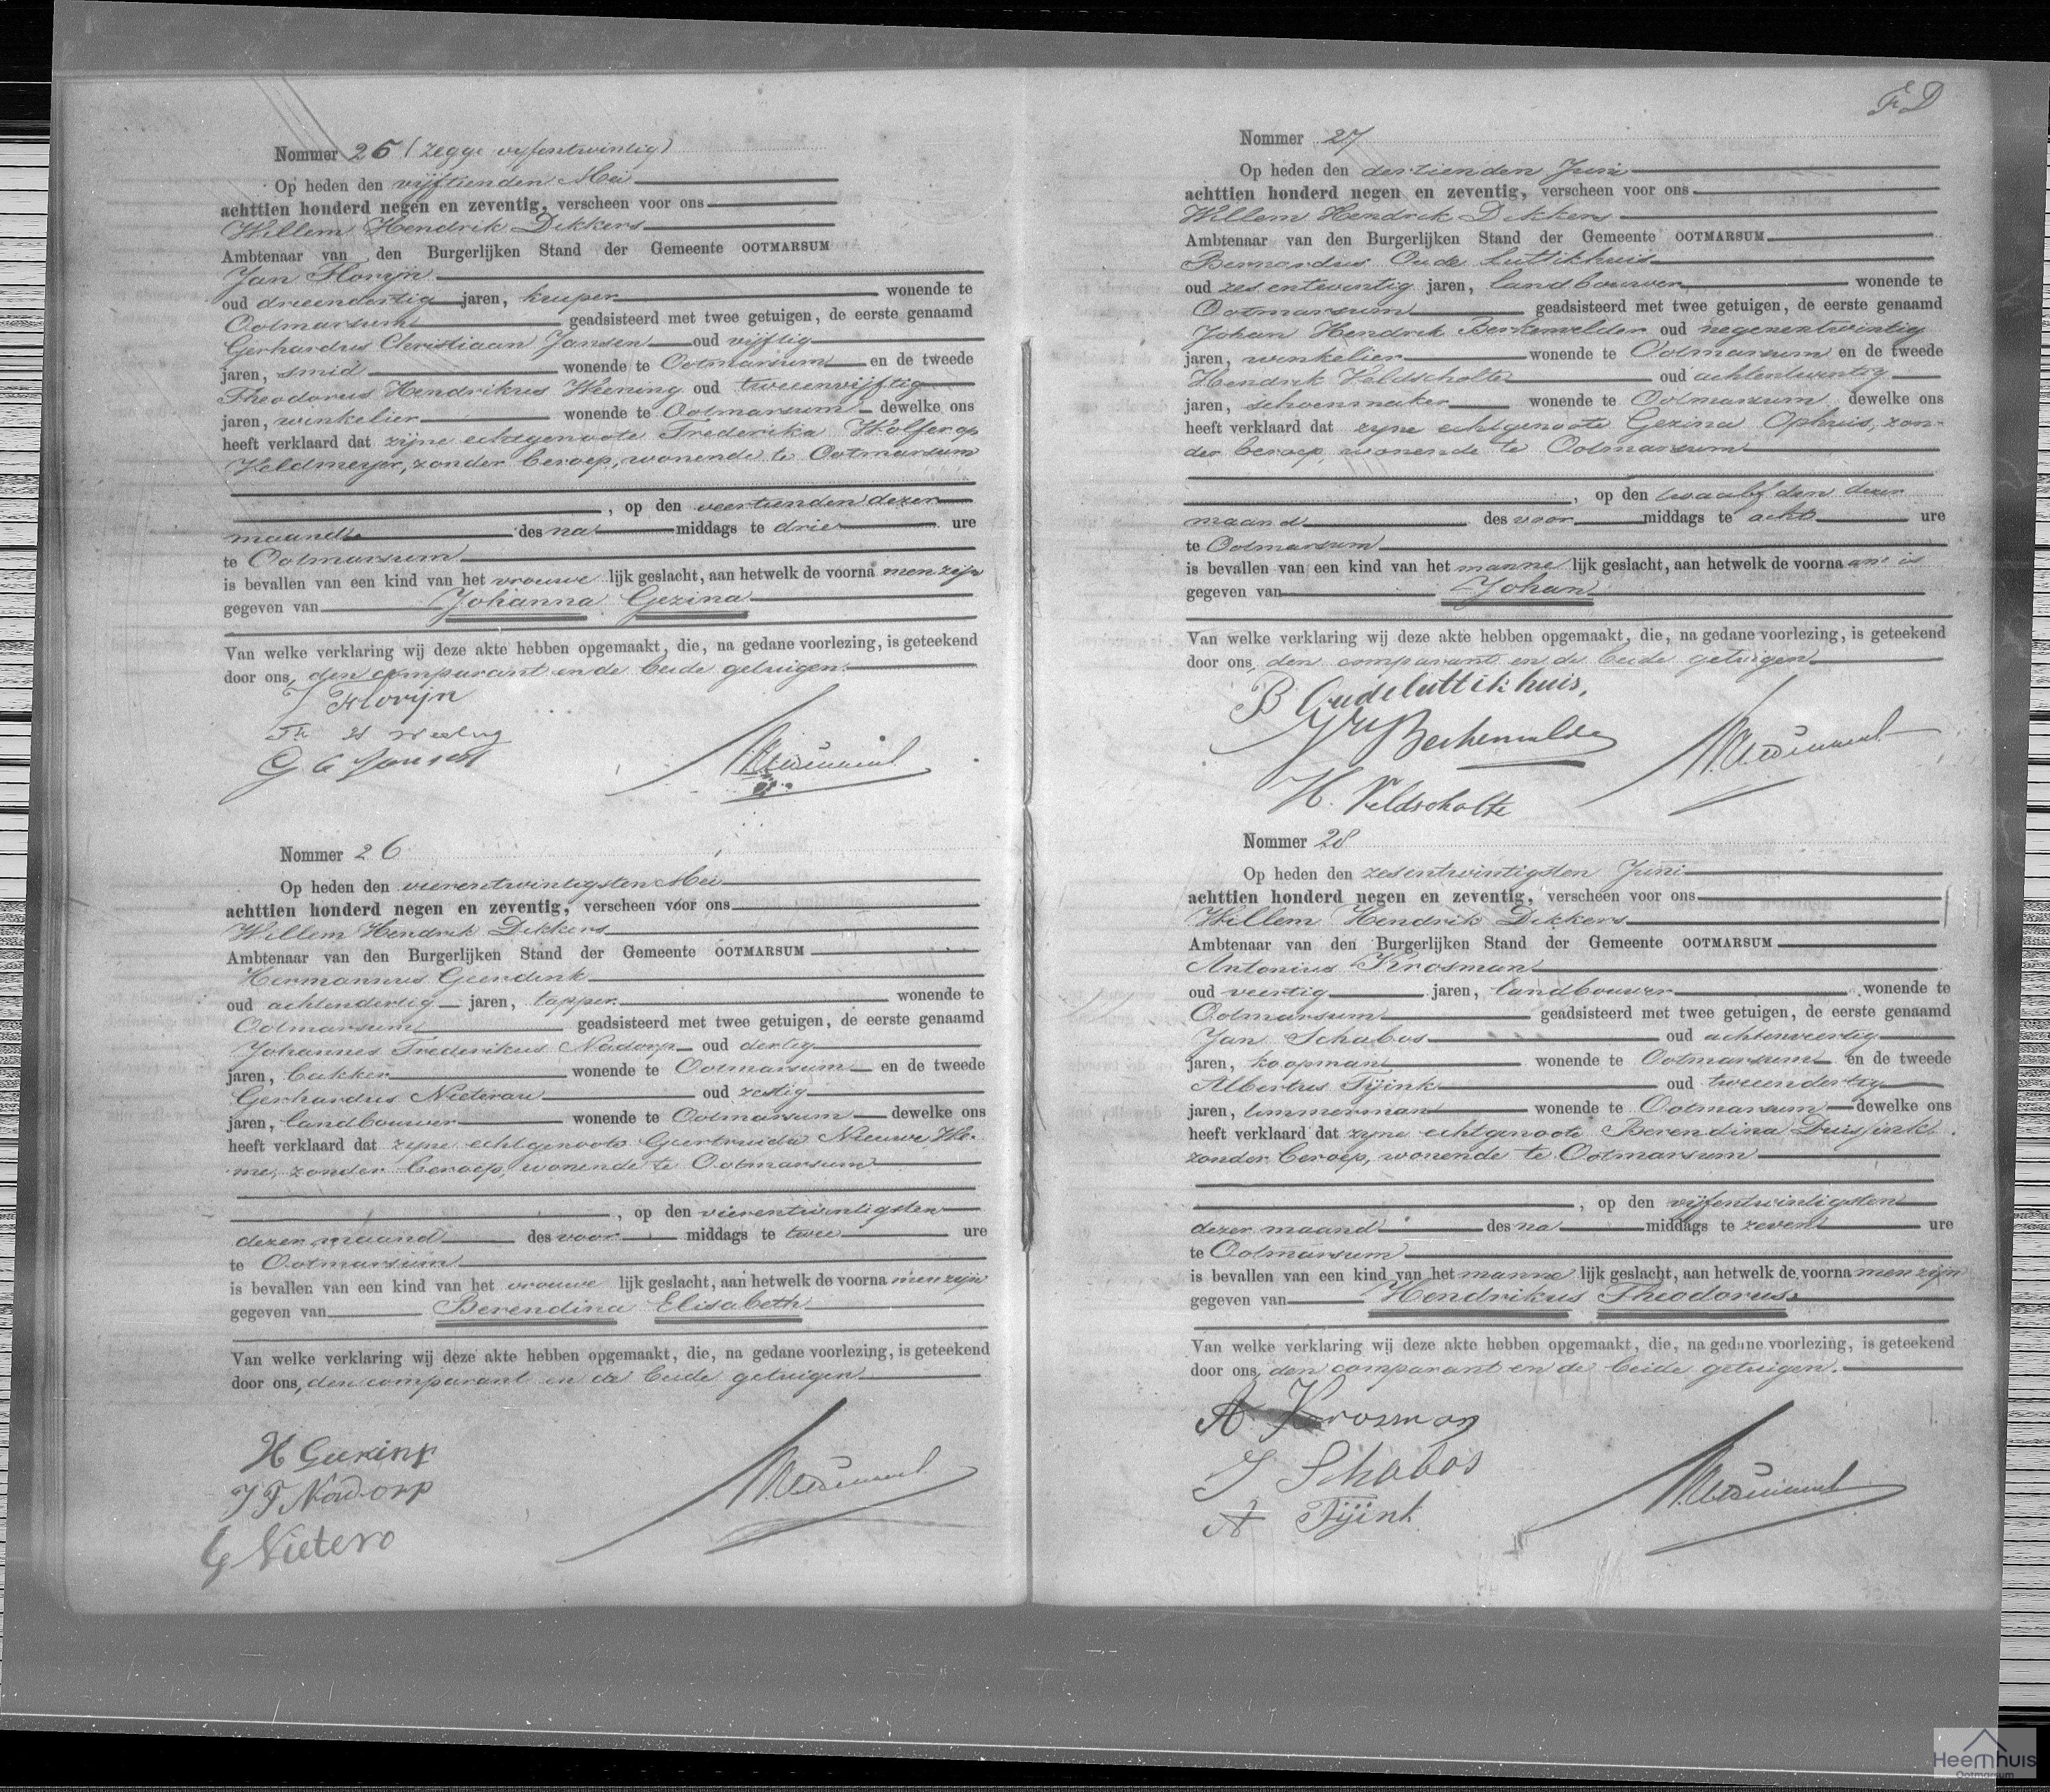 Nommer 25 (zegge vyfentwintig)
Op heden den vijftienden Mei
achttien honderd negen en zeventig, verscheen voor ons
Willem Hendrik Dikkers
Ambtenaar van den Burgerlijken Stand der Gemeente OOTMARSUM
Jan Florijn
oud drieendertig jaren, kuiper wonende te
Ootmarsum geadsisteerd met twee getuigen, de eerste genaamd
Gerhardus Christiaan Jansen oud vijftig
jaren, smid wonende te Ootmarsum en de tweede
Theodorus Hendrikus Weening oud tweeenvijftig
jaren, winkelier wonende te Ootmarsum dewelke ons
heeft verklaard dat zijne echtgenoote Frederika Wolferop
Veldmeyer, zonder beroep, wonende te Ootmarsum
, op den veertienden dezer
maand des na middags te drie ure
te Ootmarsum
is bevallen van een kind van het vrouwe lijk geslacht, aan hetwelk de voorna men zijn
gegeven van Johanna Gezina
Van welke verklaring wij deze akte hebben opgemaakt, die, na gedane voorlezing, is geteekend
door ons, den comparant en de beide getuigen.
J Florijn
G C Jansen
Nommer 26
Op heden den vierentwintigsten Mei
achttien honderd negen en zeventig, verscheen voor ons
Willem Hendrik Dikkers
Ambtenaar van den Burgerlijken Stand der Gemeente OOTMARSUM
Hermannus Geerdink
oud achtendertig jaren, tapper wonende te
Ootmarsum geadsisteerd met twee getuigen, de eerste genaamd
Johannes Frederikus Nadorp oud dertig
jaren, bakker wonende te Ootmarsum en de tweede
Gerhardus Nieterau oud zestig
jaren, landbouwer wonende te Ootmarsum dewelke ons
heeft verklaard dat zijne echtgenoote Geertruida Nieuwe We-
me, zonder beroep, wonende te Ootmarsum
, op den vierentwintigsten
dezer maand des voor middags te twee ure
te Ootmarsum
is bevallen van een kind van het vrouwe lijk geslacht, aan hetwelk de voorna men zijn
gegeven van Berendina Elisabeth
Van welke verklaring wij deze akte hebben opgemaakt, die, na gedane voorlezing, is geteekend
door ons, den comparant en de beide getuigen
H Geerink
J F Nadorp
G Nietero
F D
Nommer 27
Op heden den dertienden Juni
achttien honderd negen en zeventig, verscheen voor ons
Willem Hendrik Dikkers
Ambtenaar van den Burgerlijken Stand der Gemeente OOTMARSUM
Bernardus Oude Luttikhuis
oud zesentwintig jaren, landbouwer wonende te
Ootmarsum geadsisteerd met twee getuigen, de eerste genaamd
Johan Hendrik Berkemulder oud negenentwintig
jaren, winkelier wonende te Ootmarsum en de tweede
Hendrik Veldscholte oud achtentwintig
jaren, schoenmaker wonende te Ootmarsum dewelke ons
heeft verklaard dat zyne echtgenoote Gezina Ophuis, zon-
der beroep, wonende te Ootmarsum
, op den twaalfden dezer
maand des voor middags te acht ure
te Ootmarsum
is bevallen van een kind van het manne lijk geslacht, aan hetwelk de voorna am is
gegeven van Johan
Van welke verklaring wij deze akte hebben opgemaakt, die, na gedane voorlezing, is geteekend
door ons, den comparant en de beide getuigen
B Oudeluttikhuis,
JH Berkemulder
H. Veldscholte
Nommer 28
Op heden den zesentwintigsten Juni
achttien honderd negen en zeventig, verscheen voor ons
Willem Hendrik Dikkers
Ambtenaar van den Burgerlijken Stand der Gemeente OOTMARSUM
Antonius Krosman
oud veertig jaren, landbouwer wonende te
Ootmarsum geadsisteerd met twee getuigen, de eerste genaamd
Jan Schabos oud achtenveertig
jaren, koopman wonende te Ootmarsum en de tweede
Albertus Tijink oud tweeendertig
jaren, timmerman wonende te Ootmarsum dewelke ons
heeft verklaard dat zyne echtgenoote Berendina Duesink
zonder beroep, wonende te Ootmarsum
, op den vijfentwintigsten
dezer maand des na middags te zeven ure
te Ootmarsum
is bevallen van een kind van het manne lijk geslacht, aan hetwelk de voorna men zijn
gegeven van Hendrikus Theodorus
Van welke verklaring wij deze akte hebben opgemaakt, die, na gedane voorlezing, is geteekend
door ons, den comparant en de beide getuigen.
A Krosman
J Schabos
A Tijink
Heemhuis
Ootmarsum